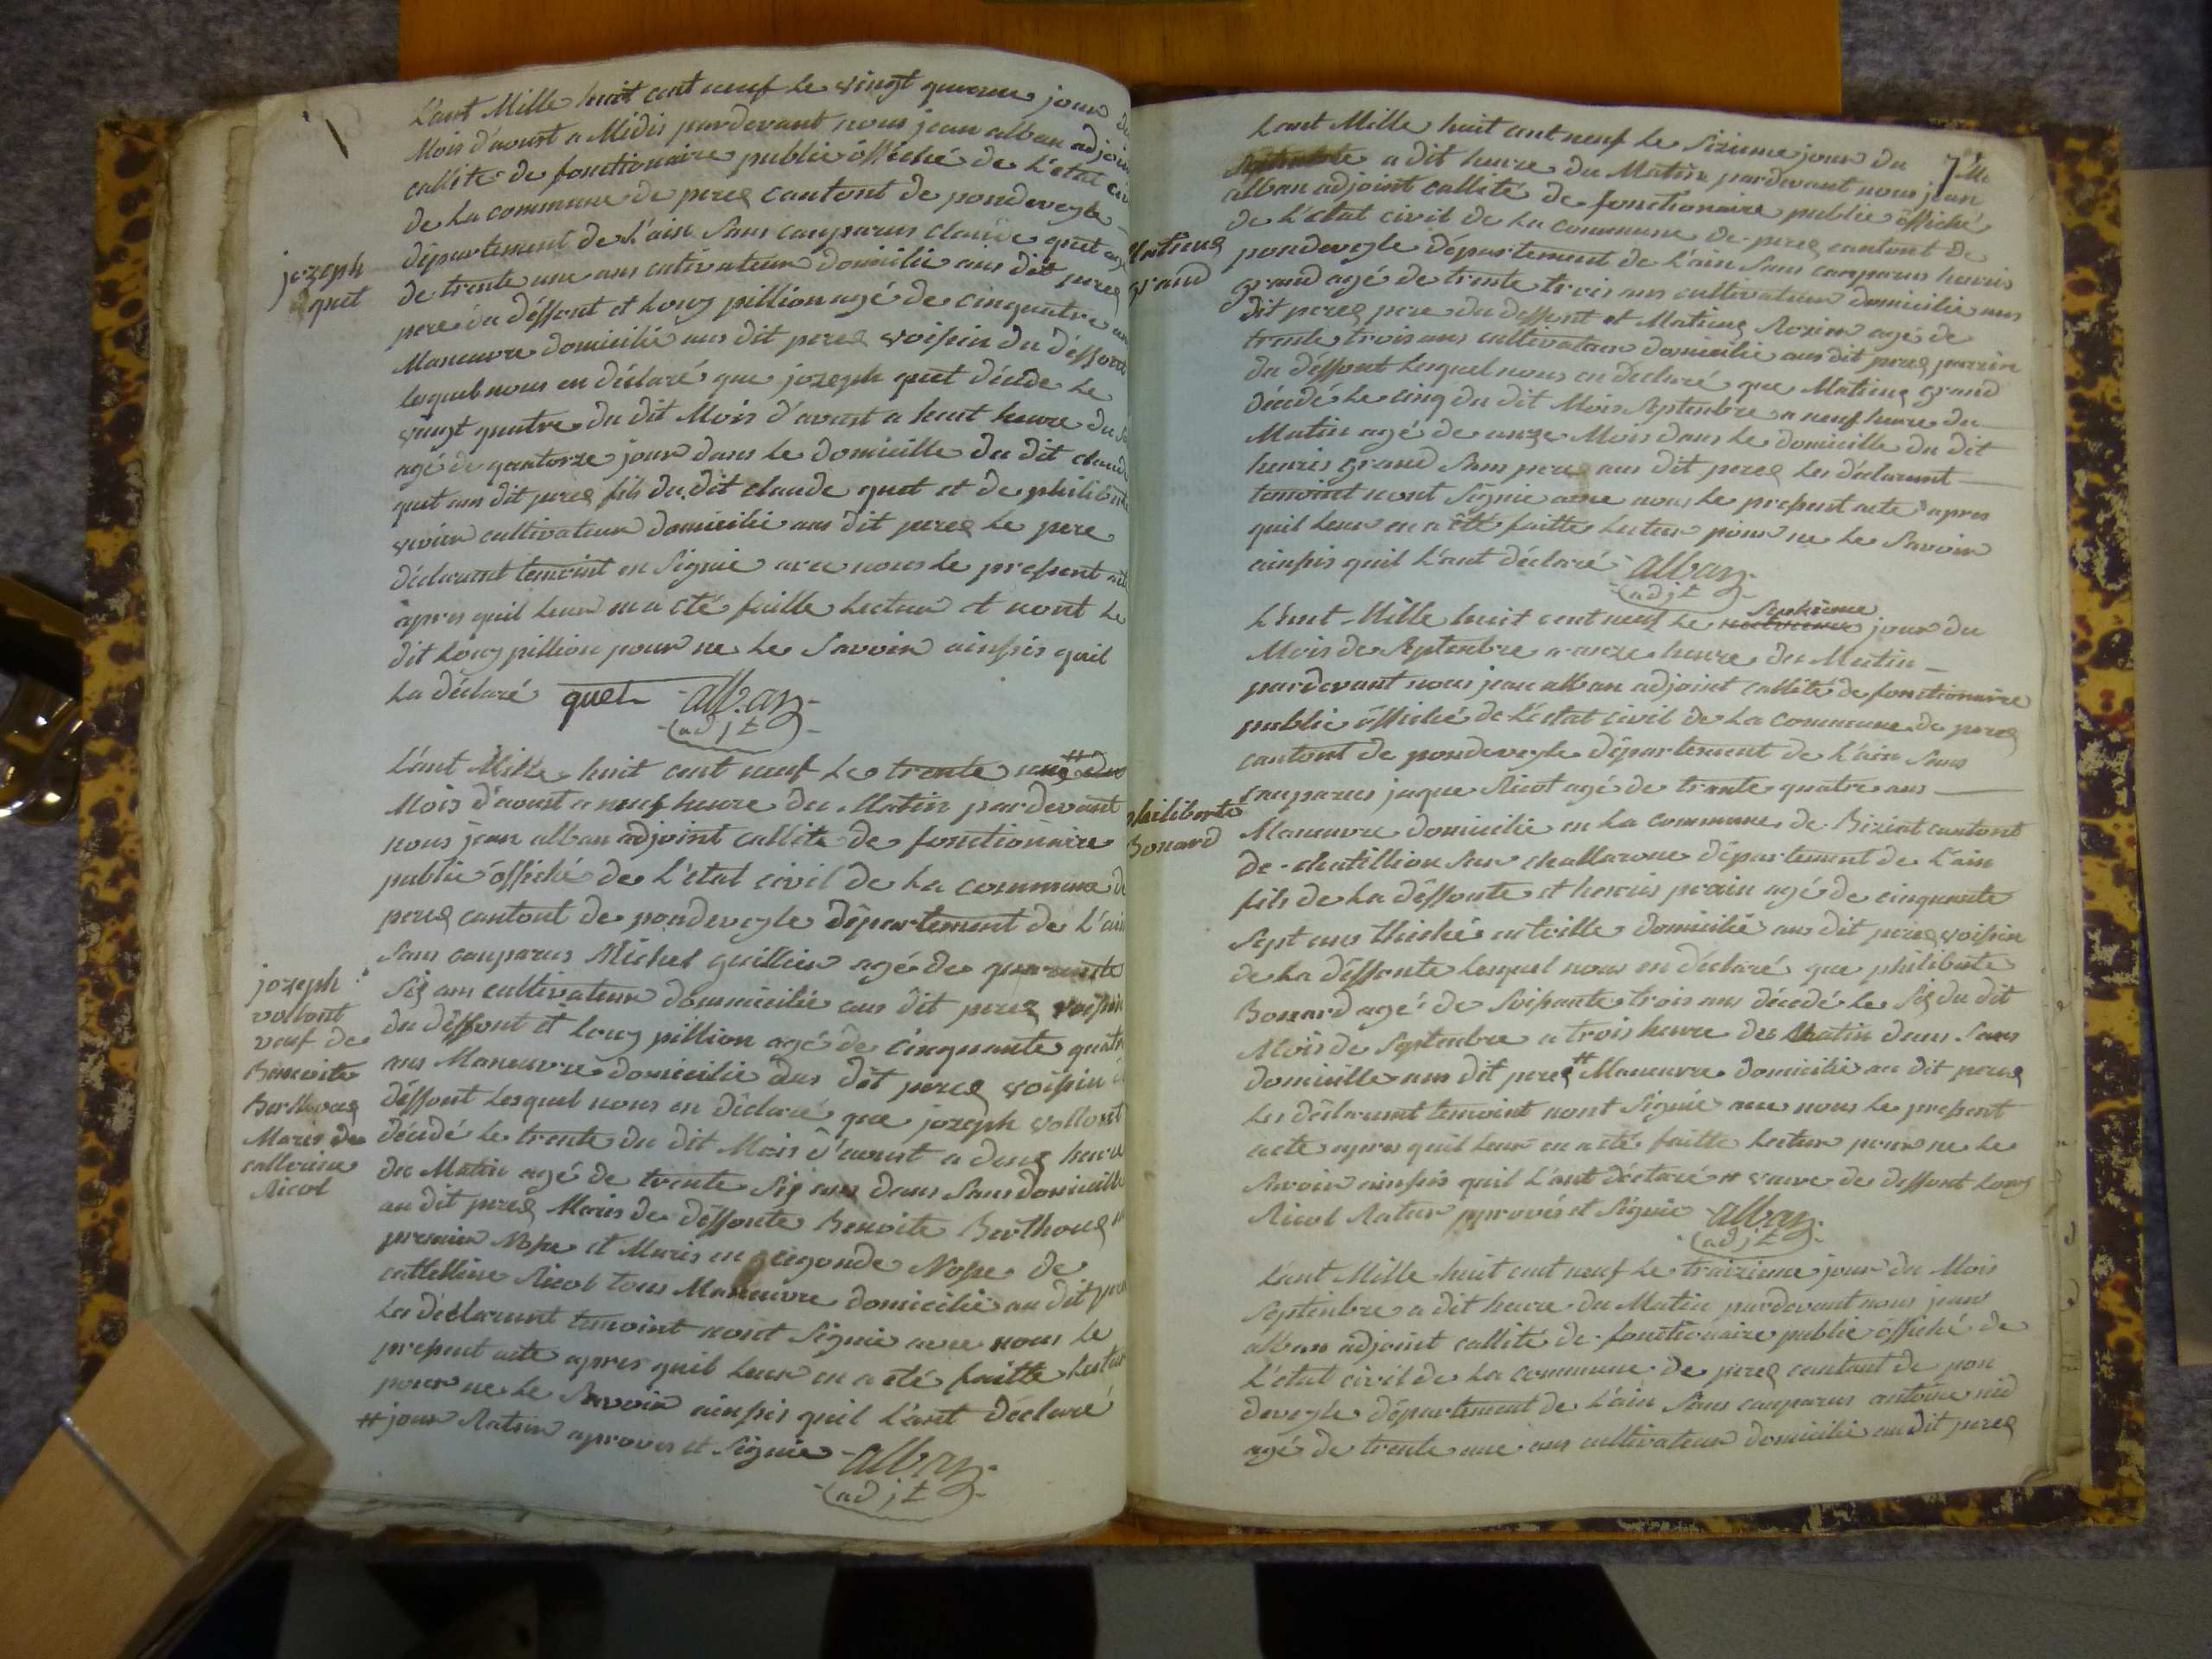 L'ant Mille huit cent neuf le vingt jour du
Mois d'aoust a Midis pardevant nous jean alban adjoin
callite de fonctionaire public óffiché de L'état civ
de La commune de perex cantont de pondevegle
département de L'ain Sans conparus claude quet agé
jozeph
quet
de trente une ans cultivateur domicilié aus dit perex
pere du déffont et Louy pillion agé de cinquatre ans
Maneuvre domicilié aus dit perex voisin du déffont
lequel nous en déclaré que jozeph quet décédé Le
vingt quatre du dit Mois d'aoust a huit heure du
agé de quatorze jour dans le domicille du dit claude
quet aus dit perex fils du dit claude quet et de philiberte
cultivateur domicilié aus dit perex Le pere
déclarant temoint en Signie avec nous Le present acte
apres quil Leur en a été faitte Lecteur et nont Le
dit Louy pillion pour ne Le Savoir ainsis quil
La déclaré quet alban
adjt
L'ant Mille huit cent neuf Le trente une # du
Mois d'aoust a neuf heure du Matin pardevant
nous jean alban adjoint callite de fonctionaire
public óffiché de L'état civil de La commune de
perex cantont de pondevegle département de L'ain
Sans conparus Michel guillien agé de quarante
jozeph
vollont
veuf de
Benoite
Berthoux
Maris de
catterine
Nicol
Six ans cultivateur dommicilié aus dit perex voisin
du déffont et Louy pillion agé de cinquante quatre
ans Maneuvre domicilié aus dit perex voisin du
déffont Lesquel nous en déclaré que jozeph vollont
décédé Le trente du dit Mois d'aoust a deux heure
du Matin agé de trente Six ans dans Sans domicille
au dit perex Maris de déffonte Benoite Berthoux en
premier Nosse et Maris en segonde Nosse de
catteline Nicol tous Maneuvre domicilié au dit perex
Les déclarant temoint nont Signie avec nous Le
present acte apres quil Leur en a été faitte Lecteur
pour ne Le Savoir ainsis quil L'ant déclaré
# jour Ratur aprovés et Signie alban
adjt
L'ant Mille huit cent neuf Le Sixieme jour du
Septenbre a dit heure du Matin pardevant nous jean
alban adjoint callité de fonctionaire public óffiché
de L'état civil de La commune de perex cantont de
Matieux
grand
pondevegle département de L'ain Sans conparus henris
grand agé de trente trois ans cultivateur domicilié aus
dit perex pere du deffont et Matieux Rozier agé de
trente trois ans cultivateur domicilié aus dit perex parrin
du déffont Lesquel nous en declaré que Matieux grand
décédé Le cinq du dit Mois Septenbre a neuf heure du
Matin agé de onze Mois dans Le domicille du dit
henris grand Sans pere aus dit perex Les déclarant
temoint nont Signie avec nous Le present acte apres
quil Leur en a été faitte Lecteur pour ne Le Savoir
ainsis quil L'ant déclaré alban
adjt
L'ant Mille huit cent neuf Le Septieme jour du
Mois de Septenbre a onze heure du Matin
pardevant nous jean alban adjoint callité de fonctionaire
public óffiché de L'état civil de La commune de perex
cantont de pondevegle département de L'ain Sans
conparus jaque Nicot agé de trante quatre ans
philiberte
Bonard
Maneuvre domicilié en La commune de Biziat cantont
de chatillion Sur challarone département de L'ain
fils de La déffonte et henris prain agé de cinquante
Sept ans domicilié aus dit perex voisin
de La déffonte Lesquel nous en déclaré que philiberte
Bonard agé de Soisante trois ans décédé Le Six du dit
Mois de Septenbre a trois heure du Matin dans Sans
domicille aus dit perex # Maneuvre domicilié au dit perex
Les déclarant temoint nont Signie avec nous Le present
acte apres quil Leur en a été faitte Lectur pour ne Le
Savoir ainsis quil L'ant déclaré # vauve de deffont Louy
Nicol Ratur pprovés et Signie alban
adjt
L'ant Mille huit cent neuf Le traizieme jour du Mois
Septenbre a dit heure du Matin pardevant nous jean
alban adjoint callité de fonctionaire public óffiché de
L'état civil de La commune de perex cantont de pon
devegle département de L'ain Sans conparus antoine nid
agé de trente une ans cultivateur domicilié au dit perex